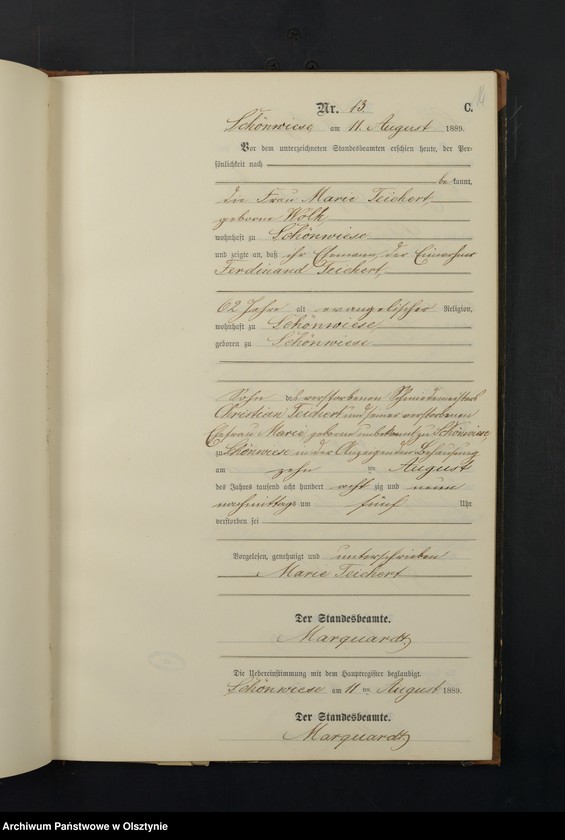 14
Nr. 13 C.
Schönwiese am 11. August 1889.
Vor dem unterzeichneten Standesbeamten erschien heute, der Per-
sönlichkeit nach
be kannt,
die Frau Marie Teichert,
geborne Wölk
wohnhaft zu Schönwiese
und zeigte an, daß ihr Ehemann, der Einwohner
Ferdinand Teichert,
62 Jahre alt evangelischer Religion,
wohnhaft zu Schönwiese
geboren zu Schönwiese
Sohn des verstorbenen Schmiedemeisters
Christian Teichert und seiner verstorbenen
Ehefrau Marie, geborne unbekannt zu Schönwiese
zu Schönwiese in der Anzeigenden Behausung
am zehn ten August
des Jahres tausend acht hundert acht zig und neun
nachmittags um fünf Uhr
verstorben sei
Vorgelesen, genehmigt und unterschrieben
Marie Teichert
Der Standesbeamte.
Marquardt
Die Uebereinstimmung mit dem Hauptregister beglaubigt.
Schönwiese am 11 ten August 1889.
Der Standesbeamte.
Marquardt
Archiwum Państwowe w Olsztynie